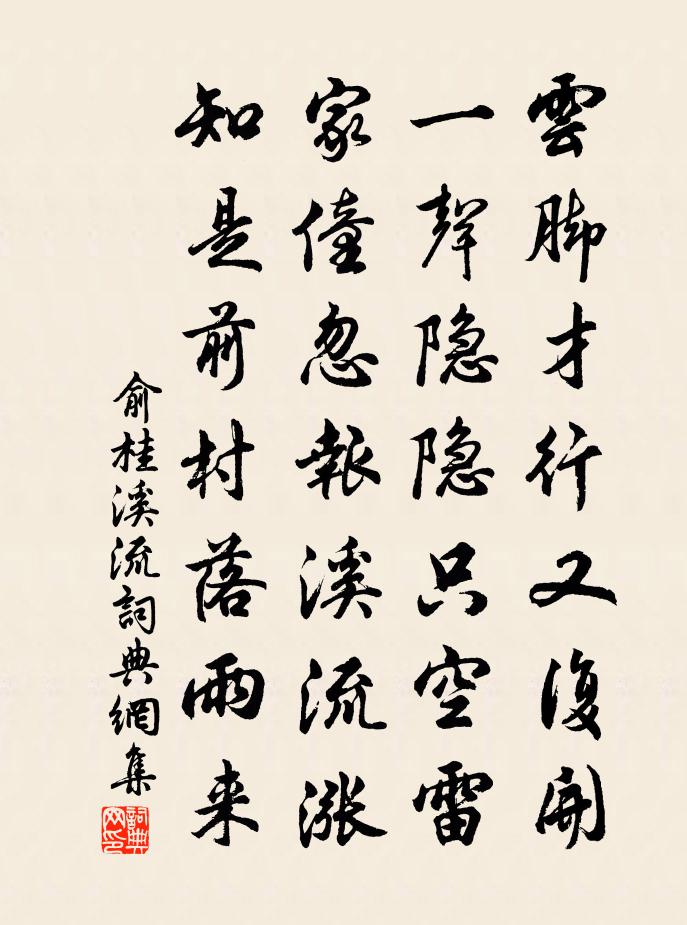 雲脚才行又復開
一聲隐隐只空雷
家僮忽報溪流漲
知是前村落雨来
俞桂溪流詞典網集
詞典
网印